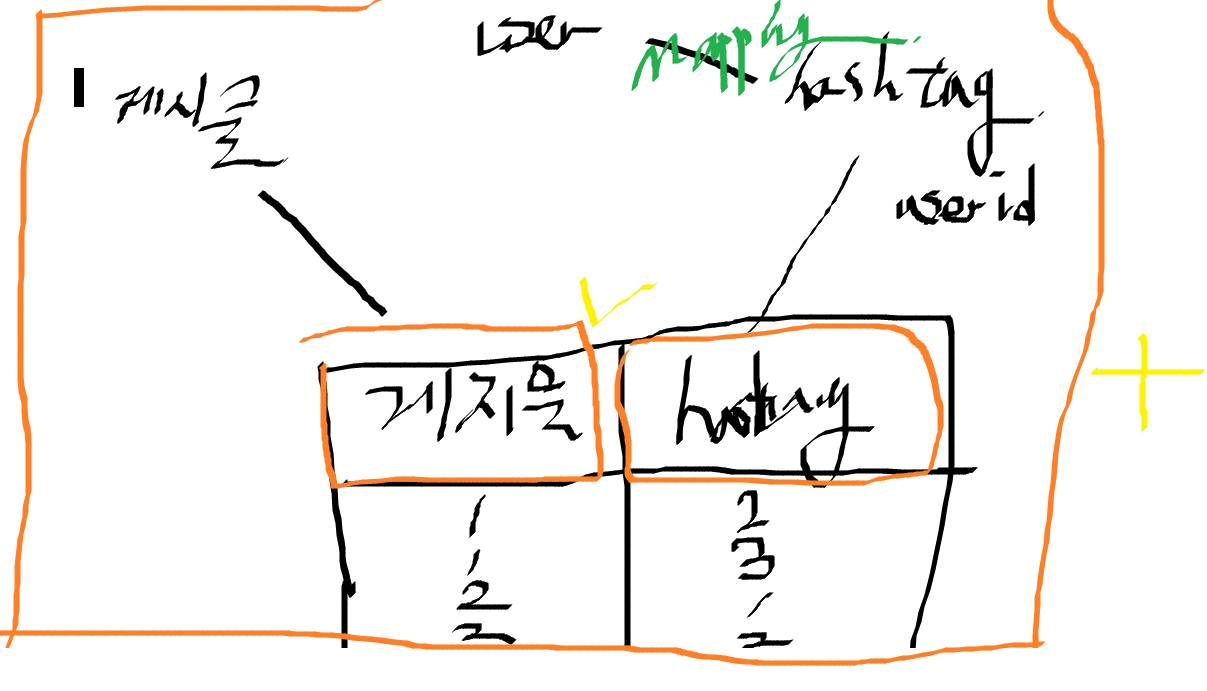 user
mapping
게시글
hashtag
userid
게지물
hashtag
1 2
1 3
2 1
2 2